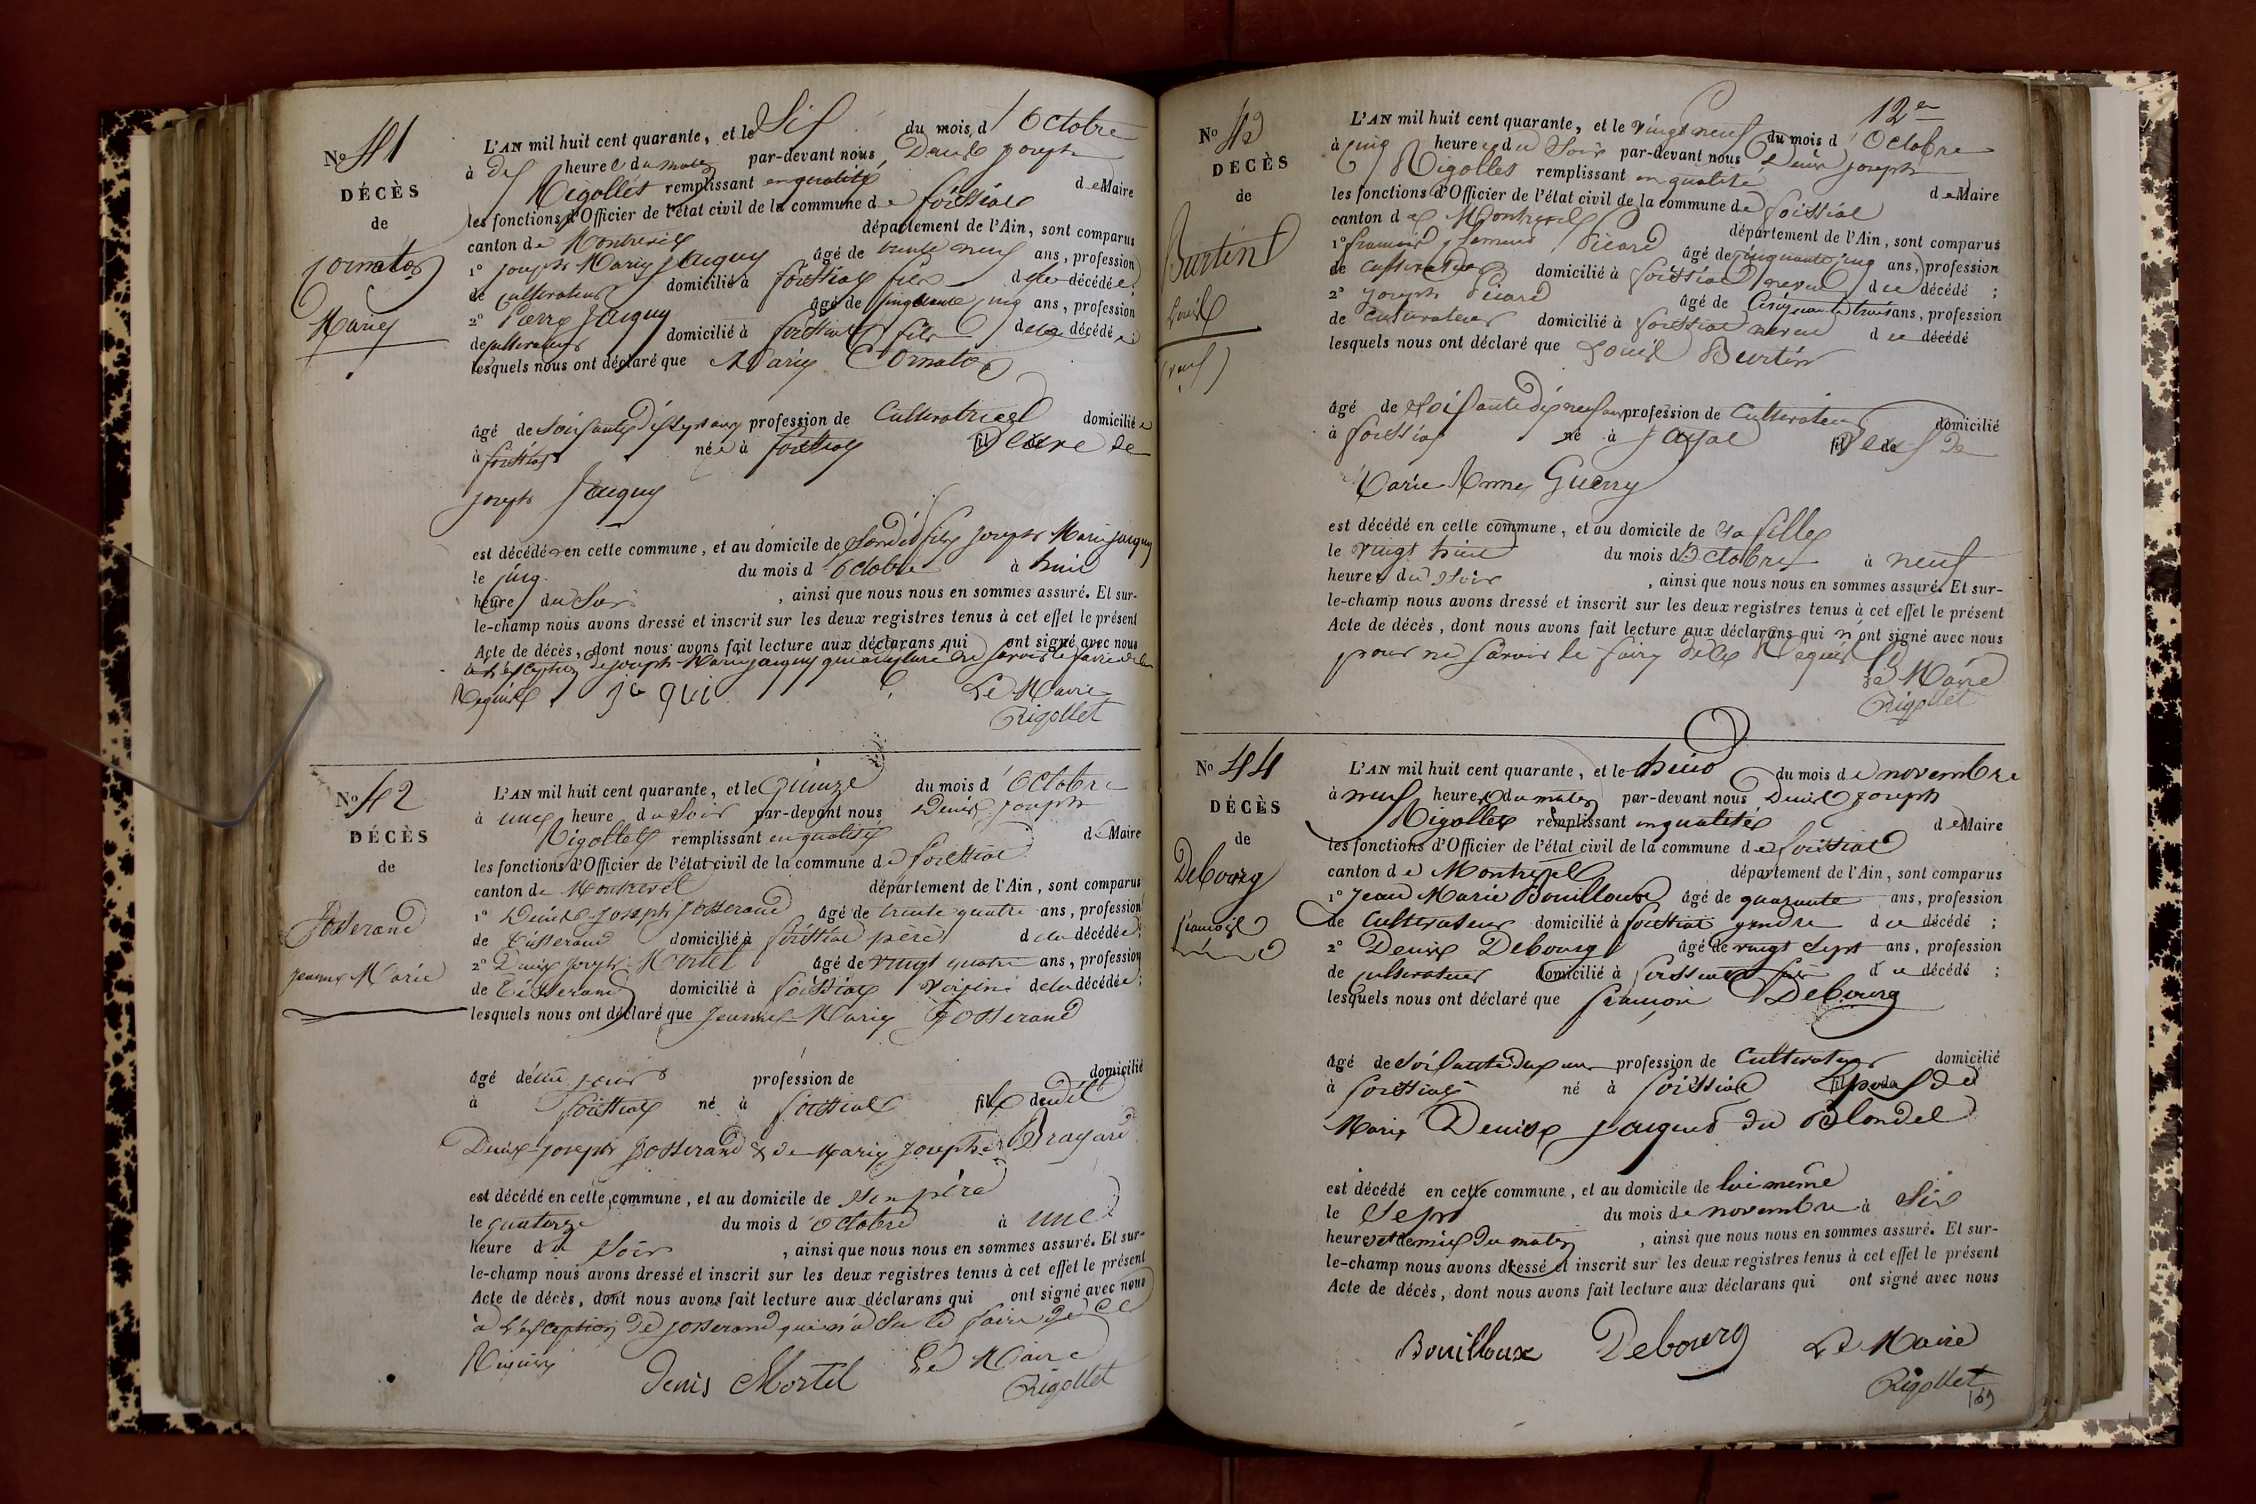 No 41
DÉCÈS
de
Cornaton
Marie
L'AN mil huit cent quarante, et le Six du mois d'Octobre
à Dix heure du matin par-devant nous Denis Joseph
Rigollet remplissant en qualité de Maire
les fonctions d'Officier de l'état civil de la commune de foissiat
canton de Montrevel département de l'Ain, sont comparus
1° joseph Marie Jacquy âgé de trente neuf ans, profession
de cultivateur domicilié à foissiat fils de la décédée;
2° Pierre Jacquy âgé de cinquante cinq ans, profession
de cultivateur domicilié à foissiat fils de la décédée;
lesquels nous ont déclaré que Marie Cornaton
âgé de Soissante Dix Sept ans profession de Cultivatrice domiciliée
à foissiat née à foissiat veuve de
joseph Jacquy
est décédée en cette commune, et au domicile de Son dit fils joseph Marie jacquy
le cinq du mois d'Octobre à huit
heure du Soir, ainsi que nous nous en sommes assuré. Et sur-
le-champ nous avons dressé et inscrit sur les deux registres tenus à cet effet le présent
Acte de décès, dont nous avons fait lecture aux déclarans qui ont signé avec nous
à l'exception de joseph Marie jacquy qui a déclaré ne savoir le faire de ce
Requis jaqui Le Maire
Rigollet
No 42
DÉCÈS
de
Josserand
jeanne Marie
L'AN mil huit cent quarante, et le Quinze du mois d'Octobre
à une heure du Soir par-devant nous Denis Joseph
Rigollet remplissant en qualité de Maire
les fonctions d'Officier de l'état civil de la commune de foissiat
canton de Montrevel département de l'Ain, sont comparus
1° Denis Joseph Josserand âgé de trente quatre ans, profession
de Tisserand domicilié à foissiat père de la décédée;
2° Denis Joseph Mortel âgé de vingt quatre ans, profession
de Tisserand domicilié à foissiat voisin de la décédée;
lesquels nous ont déclaré que jeanne Marie Josserand
âgé de jours profession de domicilié
à foissiat né à foissiat fille dudit
Denis joseph Josserand & de Marie josephe Brayard
est décédé en cette commune, et au domicile de Son père
le quatorze du mois d'Octobre à une
heure du Soir, ainsi que nous nous en sommes assuré. Et sur-
le-champ nous avons dressé et inscrit sur les deux registres tenus à cet effet le présent
Acte de décès, dont nous avons fait lecture aux déclarans qui ont signé avec nous
à l'exception de josserand qui n'a Su le faire de ce
Requis Denis Mortel Le Maire
Rigollet
12en
No 43
DÉCÈS
de
Burtin
Louis
(veuf)
L'AN mil huit cent quarante, et le vingt neuf du mois d'Octobre
à cinq heure du Soir par-devant nous Denis joseph
Rigollet remplissant en qualité de Maire
les fonctions d'Officier de l'état civil de la commune de foissiat
canton de Montrevel département de l'Ain, sont comparus
1° Picard âgé de cinquante cinq ans, profession
de cultivateur domicilié à foissiat neveu du décédé;
2° joseph Picard âgé de Cinquante trois ans, profession
de cultivateur domicilié à foissiat neveu du décédé
lesquels nous ont déclaré que Louis Burtin
âgé de Soissante dix neuf ans profession de Cultivateur domicilié
à foissiat né à jayat veuf de
Marie Anne Guerry
est décédé en cette commune, et au domicile de Sa fille
le vingt huit du mois d'Octobre à neuf
heure du Soir, ainsi que nous nous en sommes assuré. Et sur-
le-champ nous avons dressé et inscrit sur les deux registres tenus à cet effet le présent
Acte de décès, dont nous avons fait lecture aux déclarans qui n'ont signé avec nous
pour ne Savoir le faire de ce Requis
Le Maire
Rigollet
No 44
DÉCÈS
de
Debourg
françois
L'AN mil huit cent quarante, et le huit du mois de novembre
à neuf heure du matin par-devant nous Denis joseph
Rigollet remplissant en qualité de Maire
les fonctions d'Officier de l'état civil de la commune de foissiat
canton de Montrevel département de l'Ain, sont comparus
1° Jean Marie Bouilloux âgé de quarante ans, profession
de Cultivateur domicilié à foissiat gendre du décédé;
2° Denis Debourg âgé de vingt Sept ans, profession
de cultivateur domicilié à foissiat fils du décédé;
lesquels nous ont déclaré que françois Debourg
âgé de Soissante deux ans profession de Cultivateur domicilié
à foissiat né à foissiat Epoux de
Marie Denise Jacquet du Blondel
est décédé en cette commune, et au domicile de lui même
le Sept du mois de novembre à Six
heure et demie du matin, ainsi que nous nous en sommes assuré. Et sur-
le-champ nous avons dressé et inscrit sur les deux registres tenus à cet effet le présent
Acte de décès, dont nous avons fait lecture aux déclarans qui ont signé avec nous
Bouilloux Debourg Le Maire
Rigollet
169